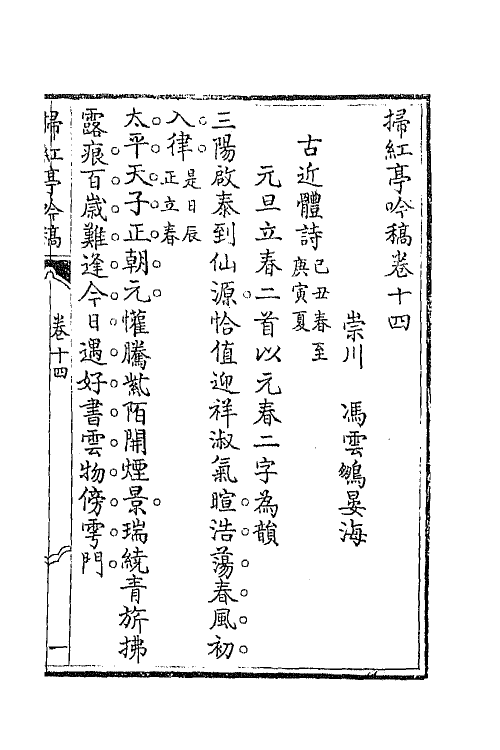 掃紅亭吟稿卷十四
崇川 馮雲鵷晏海
古近體詩己丑春至庚寅夏
元旦立春二首以元春二字為韻
三陽啟泰到仙源恰值迎祥淑氣暄浩蕩春風初
入律是日辰正立春
太平天子正朝元懽騰紫陌開煙景瑞繞青旂拂
露痕百歲難逢今日遇好書雲物傍雩門
掃紅亭吟稿
卷十四
一